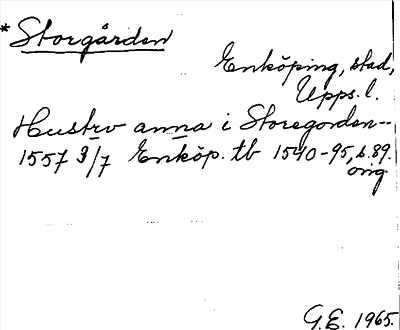 *Storgården
Enköping, stad,
Upps. l.
Hustrv anna i Storegorden--
1557 3/7 Enköp. tb 1540-95, s. 89.
orig
G.E. 1965.